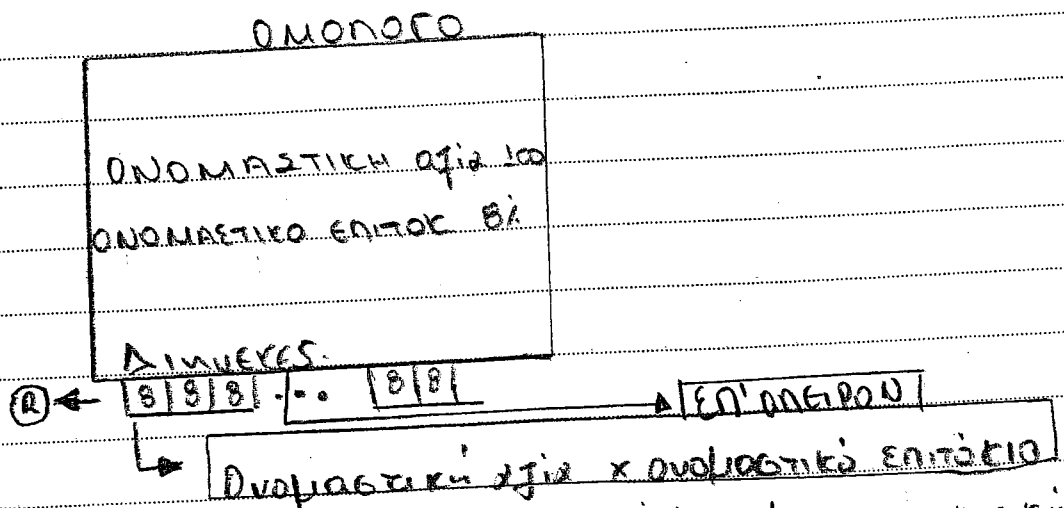 ΟΜΟΛΟΓΟ
ΟΝΟΜΑΣΤΙΚΗ αξία 100
ΟΝΟΜΑΣΤΙΚΟ ΕΠΙΤΟΚ 8%
ΔΙΗΝΕΚΕΣ.
R 8 8 8 ... 8 8
ΕΠ' ΑΠΕΙΡΟΝ
Ονομαστική αξία x ονομαστικό επιτόκιο